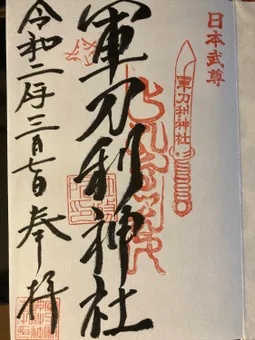 日本武尊
軍刀利神社
軍刀利神社
令和二年三月七日
奉拝